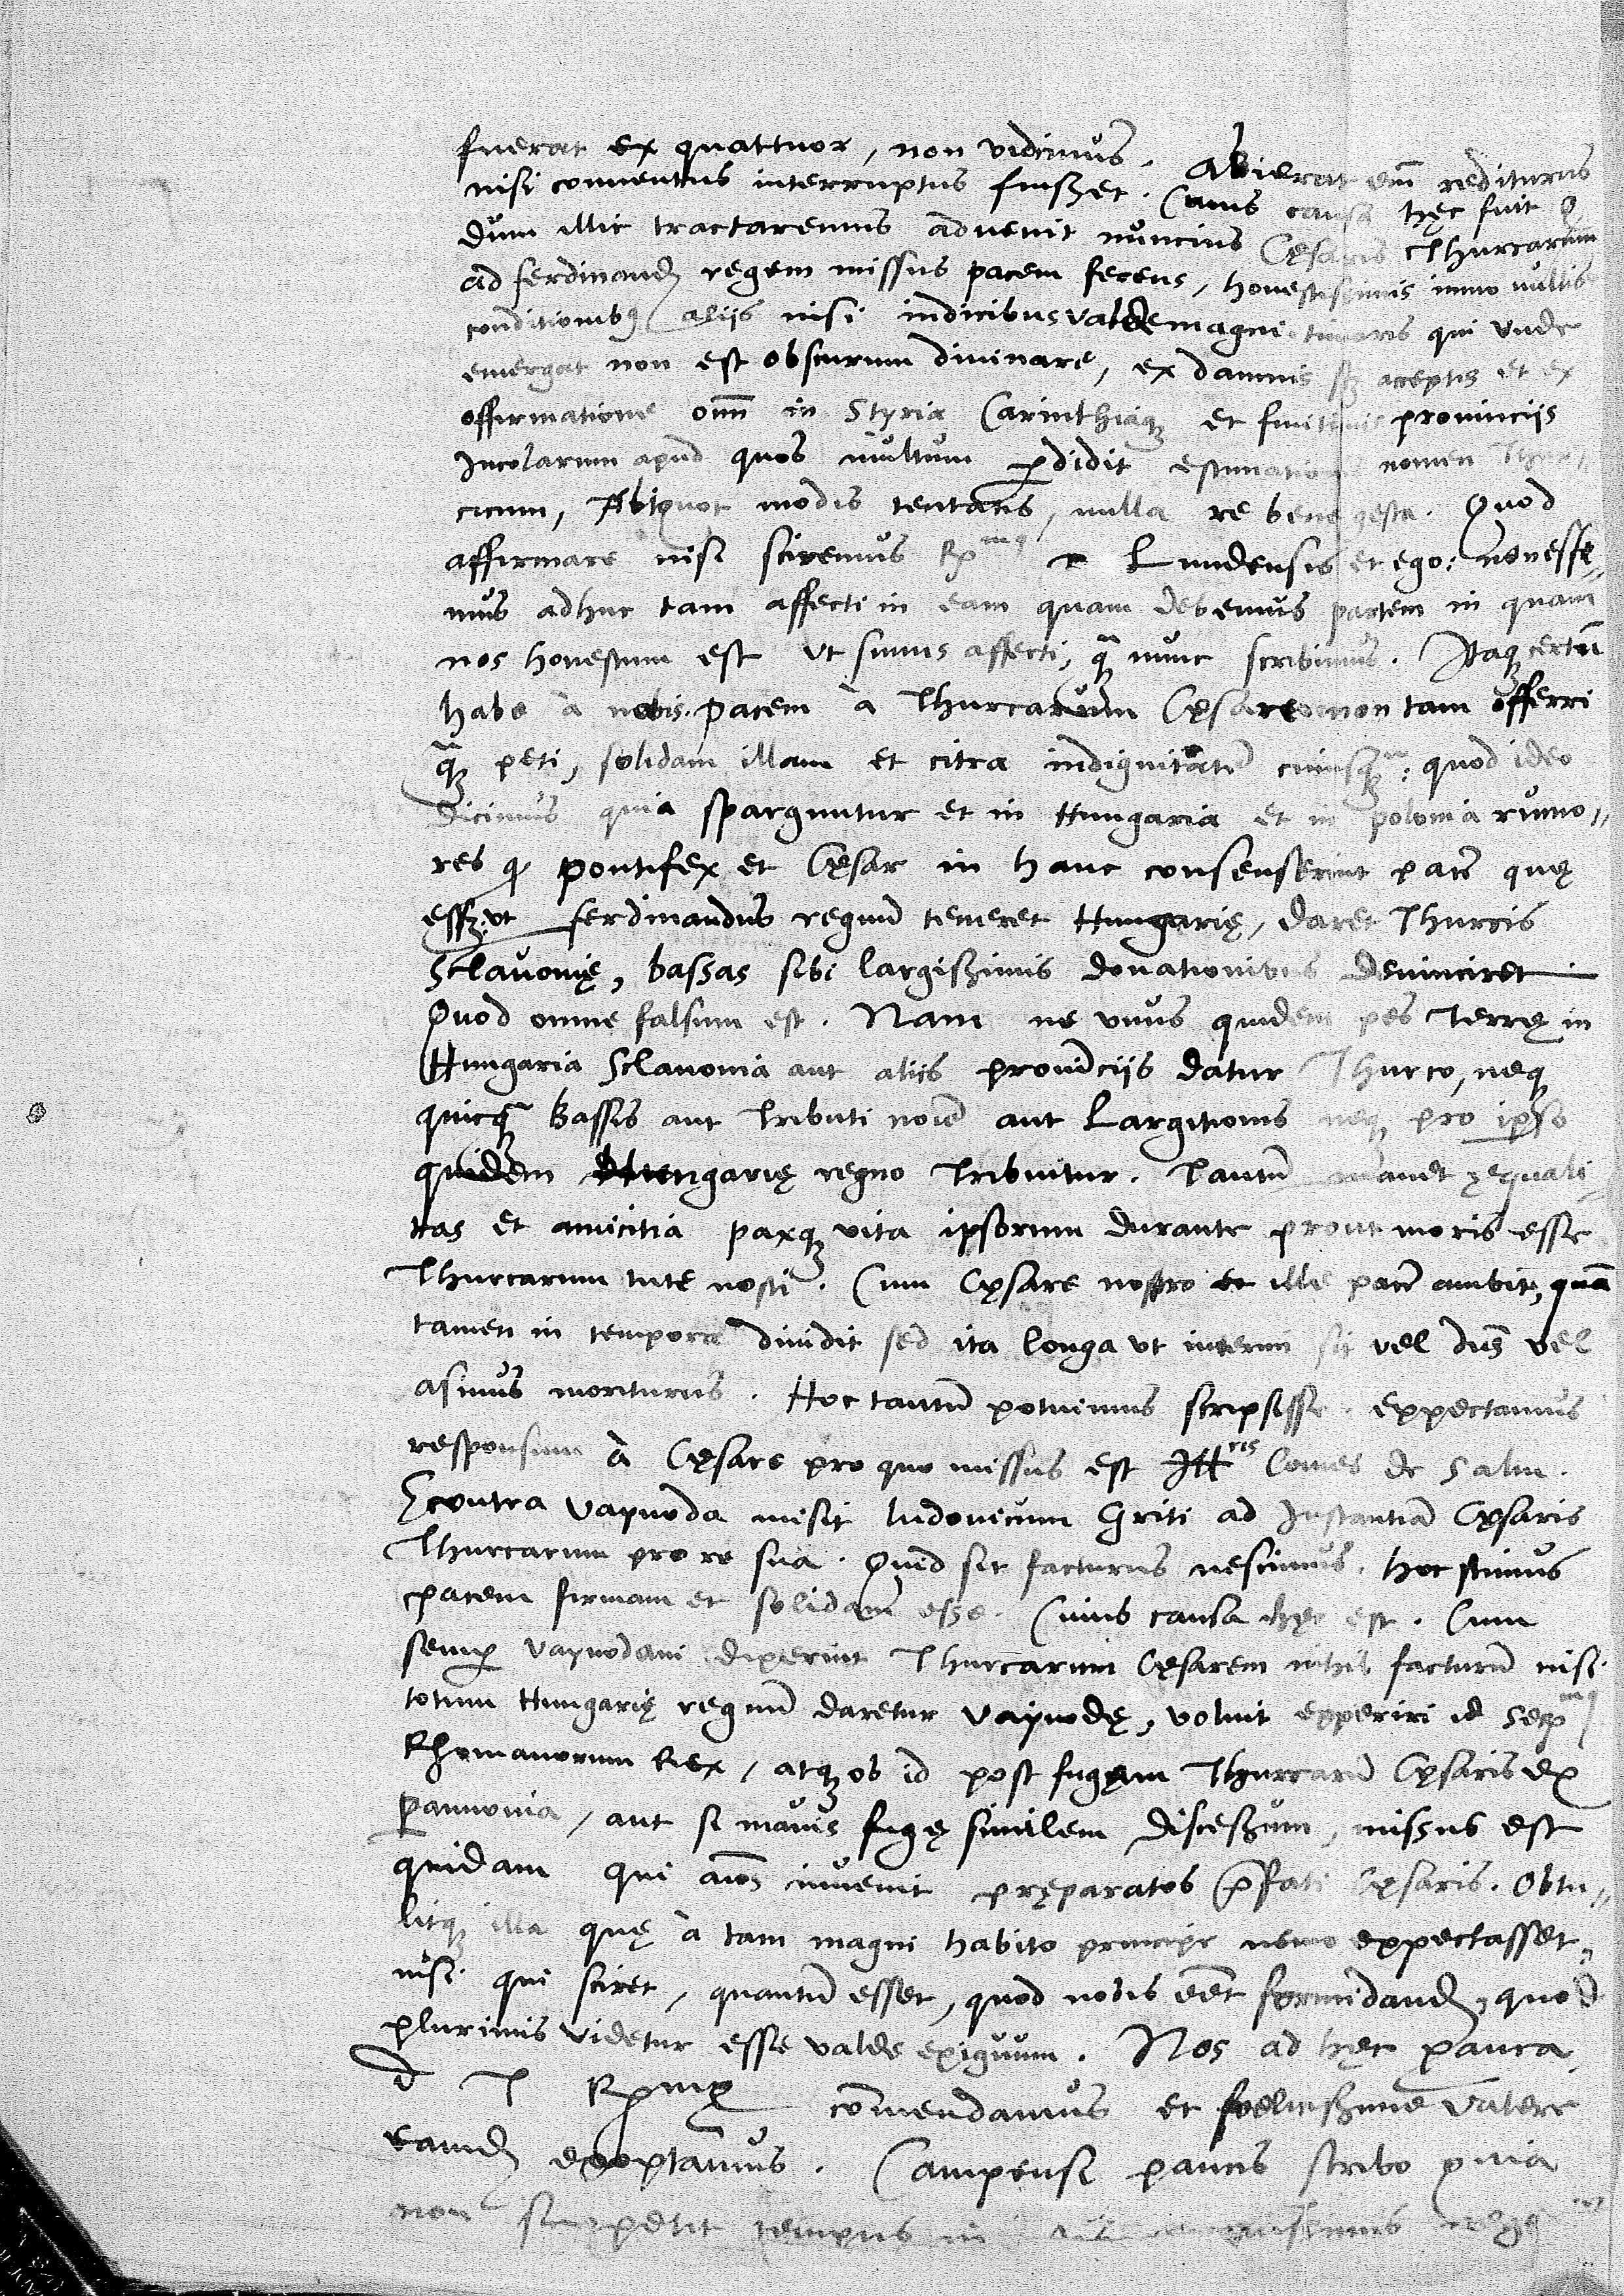 fuerat ex quattuor, non vidimus. Abierat em̄ rediturus
nisi conuentus interruptus fuisset. Cuius causa hęc fuit
dum illic tractaremus aduenit nuncius Cęsaris Thurcarum
ad ferdinand regem missus pacem ferens, honestissimis immo nullis
conditionibꝫ aliis nisi indicibus valde magni timoris qui vnde
emergat non est obscurum diuinare, ex damnis sꝫ acceptis et ex
offirmatione om̄ in Styria Carinthiaqꝫ et finitimis prouinciis
Incolarum apud quos multum ꝑdidit estimationis nomen Thur-
cicum, Aliquot modis tentatis, nulla re bene gesta. Quod
affirmare nisi sciremus Rmus D Lundensis et ego: non esse-
mus adhuc tam affecti in eam quam debemus partem in quam
nos honestum est vt simus affecti, q̄ nunc scribimus. Itaqꝫ certū
habe à nobis pacem à Thurcarum Cęsare non tam offerri
q̄ꝫ peti, solidam illam et citra indignitatē cuiusqꝫ: quod ideo
dicimus quia sparguntur et in Hungaria et in polonia rumo-
res q pontifex et Cęsar in hanc consenserint pacē quę
essꝫ: vt ferdinandus regnū teneret Hungarię, daret Thurcis
Sclauonię, bassas sibi largissimis donationibus deuinciret
Quod omne falsum est. Nam ne vnus quidem pes terrę in
Hungaria Sclauonia aut aliis prouinciis datur Thurco, neqꝫ
quicq̄ Bassis aut Tributi noīe aut Largitionis neqꝫ pro ipso
quidem Hungarię regno tribuitur. Tantū manet ęquali-
tas et amicitia paxqꝫ vita ipsorum durante prout moris esse
Thurcarum tute nosti. Cum Cęsare nostro et ille pacē ambit, quā
tamen in tempora diuidit sed ita longa vt interim sit vel dn̄s vel
asinus moriturus. Hoc tantū potuimus scripsisse. expectamus
responsum à Cęsare pro quo missus est Illris Comes de Salm.
Econtra vayuoda misit ludouicum Griti ad Instantiā Cęsaris
Thurcarum pro re sua. Quid sit facturus nescimus. hoc scimus
pacem firmam et solidam esse. Cuius causa hęc est. Cum
semꝑ vayuodani dixerint Thurcarum Cęsarem nihil facturū nisi
totum Hungarię regnū daretur vayuodę, voluit experiri id Sermus
Rhomanorum Rex, atqꝫ ob id post fugam Thurcarū Cęsaris ex
pannonia, aut si mauis fugę similem discessum, missus est
quidam qui aīos inuenit pręparatos p̄fati Cęsaris. Obtu-
litqꝫ illa quę à tam magni habito principe nemo expectasset
nisi qui sciret, quantū esset, quod nobis eēt formidand, quod
plurimis videtur esse valde exiguum. Nos ad hęc pauca
D T Rmę com̄endamus et foelicissime valere
eamd exoptamus. Campensi paucis scribo quia
non suppetit tempus in